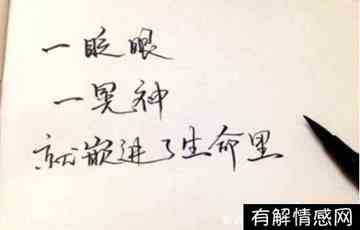 一眨眼
一晃神
就嵌进了生命里
有解情感网